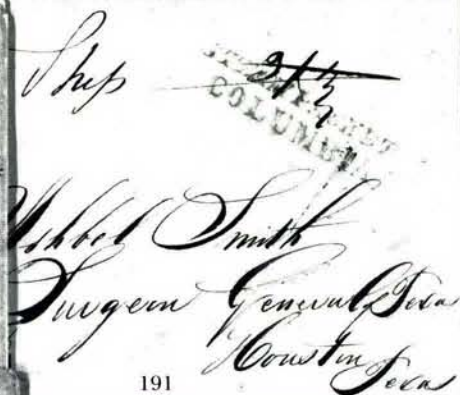 Ship
STEAM PACKET
COLUMBIA
Ashbel Smith
Surgeon General Texas
Houston
Texas
191